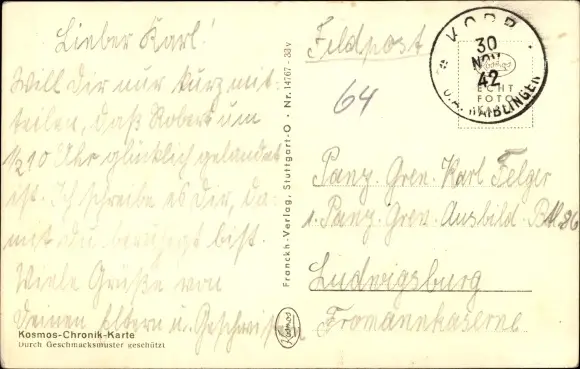 Lieber Karl!
Will Dir nur kurz mit-
teilen, daß Robert um
1/2 10 Uhr glücklich gelandet
ist. Ich schreibe es dir, da-
mit du beruhigt bist.
Viele Grüße von
Deinen Eltern u. Geschwister
Kosmos-Chronik-Karte
Durch Geschmacksmuster geschützt
Franckh-Verlag, Stuttgart-O · Nr. 14767 - 33v
Feldpost
64
KORB
30
NOV
42
WAIBLINGEN
ECHT
FOTO
Panz. Gren. Karl Felger
1. Panz. Gren. Ausbild. Btl. 86
Ludwigsburg
Fromannkaserne